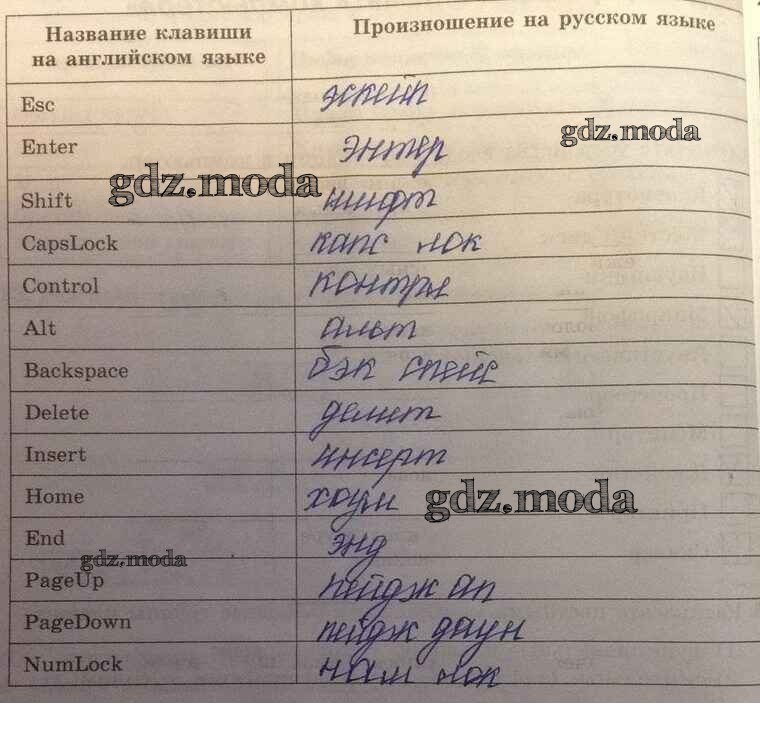 Название клавиши на английском языке Произношение на русском языке
Esc эскейп
Enter энтер
gdz.moda
gdz.moda
Shift шифт
CapsLock капс лок
Control контрл
Alt альт
Backspace бэк спейс
Delete делит
Insert инсерт
Home хоум
gdz.moda
End энд
gdz.moda
PageUp пейдж ап
PageDown пейдж даун
NumLock нам лок